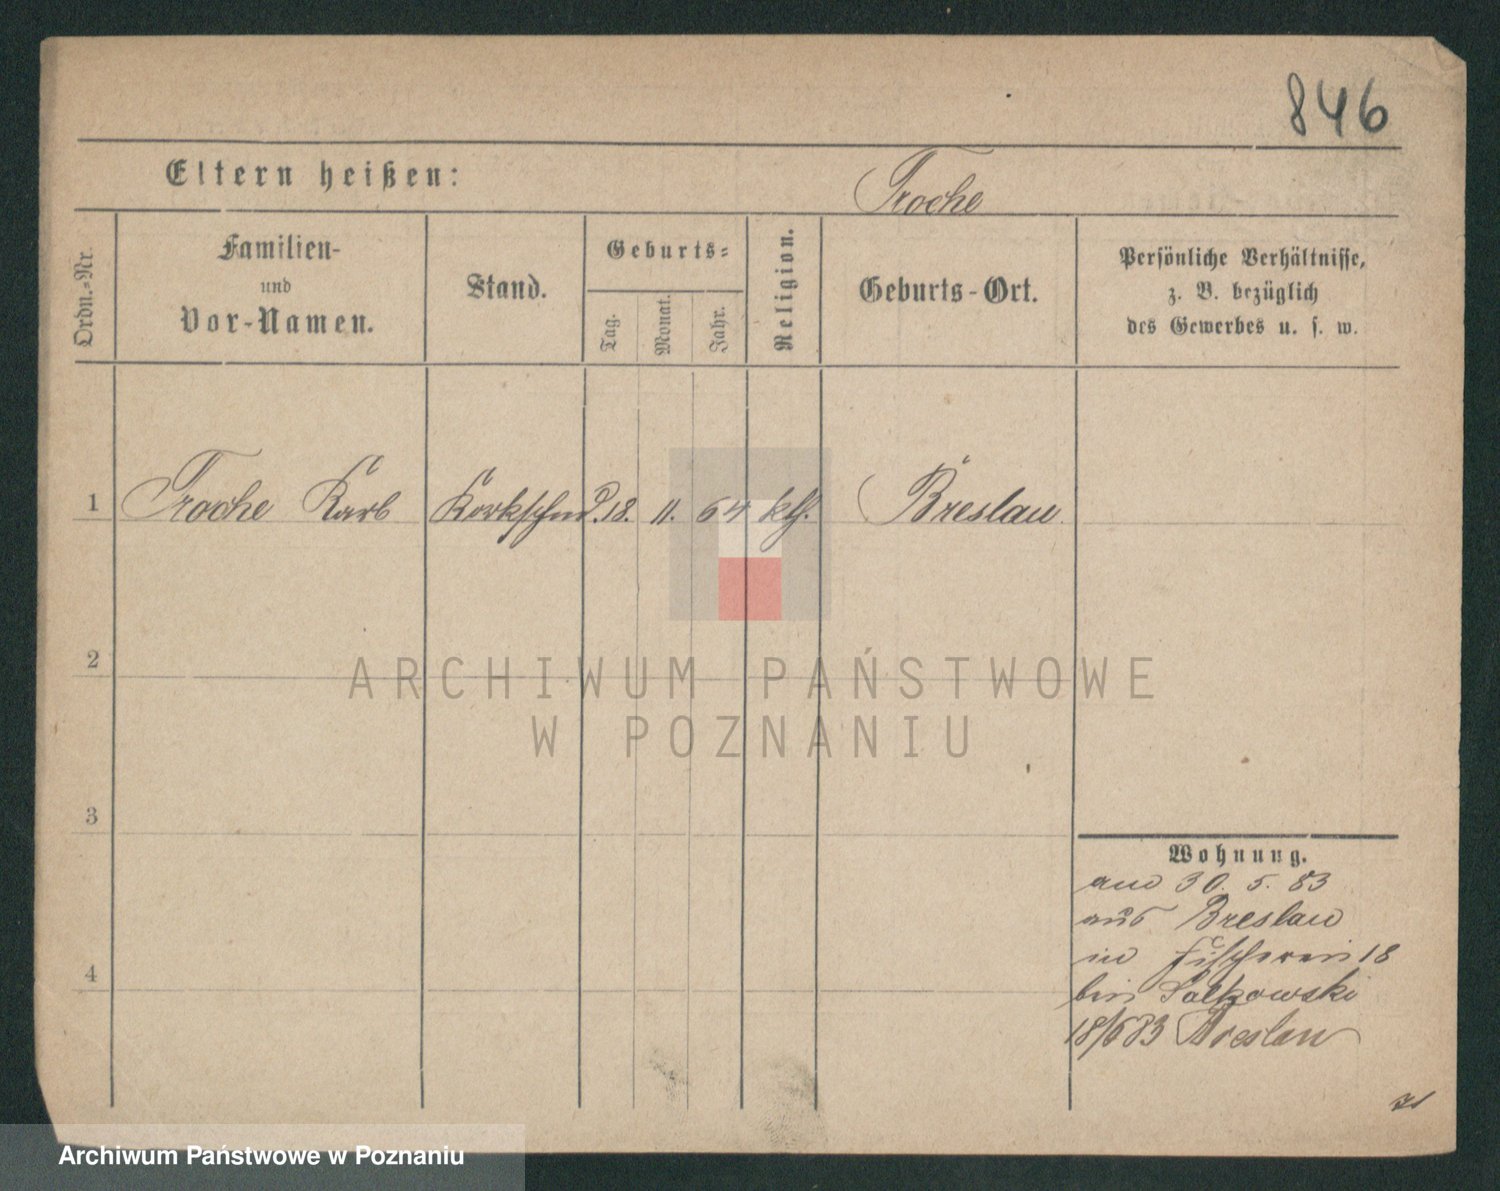 846
Eltern heißen:
Troche
Ordn.-Nr.
Familien-
und
Vor-Namen.
Stand.
Geburts-
Tag.
Monat.
Jahr.
Religion.
Geburts-Ort.
Persönliche Verhältnisse,
z. B. bezüglich
des Gewerbes u. s. w.
1 Troche Karl 18. 11. 64 kth. Breslau
2
3
4
Wohnung.
30. 5. 83
aus Breslau
in Fischerei 18
bei
18/6 83 Breslau
ARCHIWUM PAŃSTWOWE
W POZNANIU
Archiwum Państwowe w Poznaniu